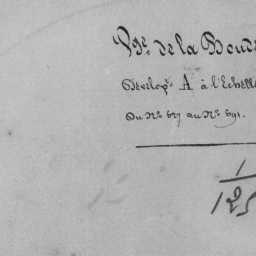 Vge de la Boude
Dévelopt A à l'Echelle
Du No 627 au No 691.
1
125